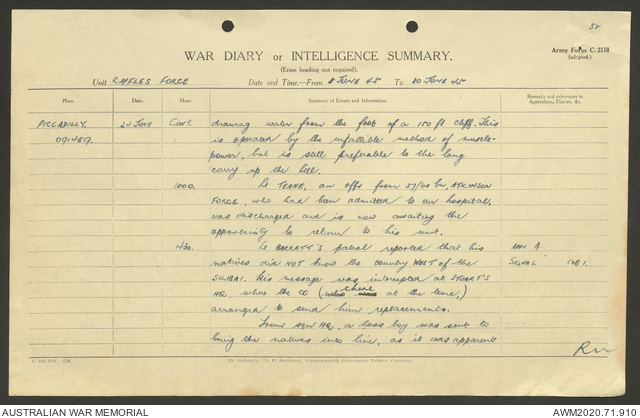 52
WAR DIARY or INTELLIGENCE SUMMARY.
Army Form C. 2118
(adapted.)
(Erase heading not required).
Unit RAFFLES FORCE Date and Time—From 8 JUNE 45 To 30 JUNE 45
Place. Date. Hour. Summary of Events and Information. Remarks and references to Appendices, Diaries, &c.
PICCADILLY. 24 JUNE Cont. drawing water from the foot of a 150 ft cliff. This
091459. is operated by the infallible method of muscle-
power, but is still preferable to the long
carry up the hill.
1000. Lt TEANE, an offr from 57/60 bn, ATKINSON
FORCE, who had been admitted to our hospital,
was discharged and is now awaiting the
opportunity to return to his unit.
1430. Lt BARRETT'S patrol reported that his APPX A
natives did NOT know the country WEST of the SIGNAL OB1.
SILIBAI. His message was intercepted at STUART'S
HQ, where the CO (there at the time,)
arranged to send him replacements.
From HQ, a boss boy was sent to
bring the natives into line, as it was apparent
AUSTRALIAN WAR MEMORIAL
AWM2020.71.910